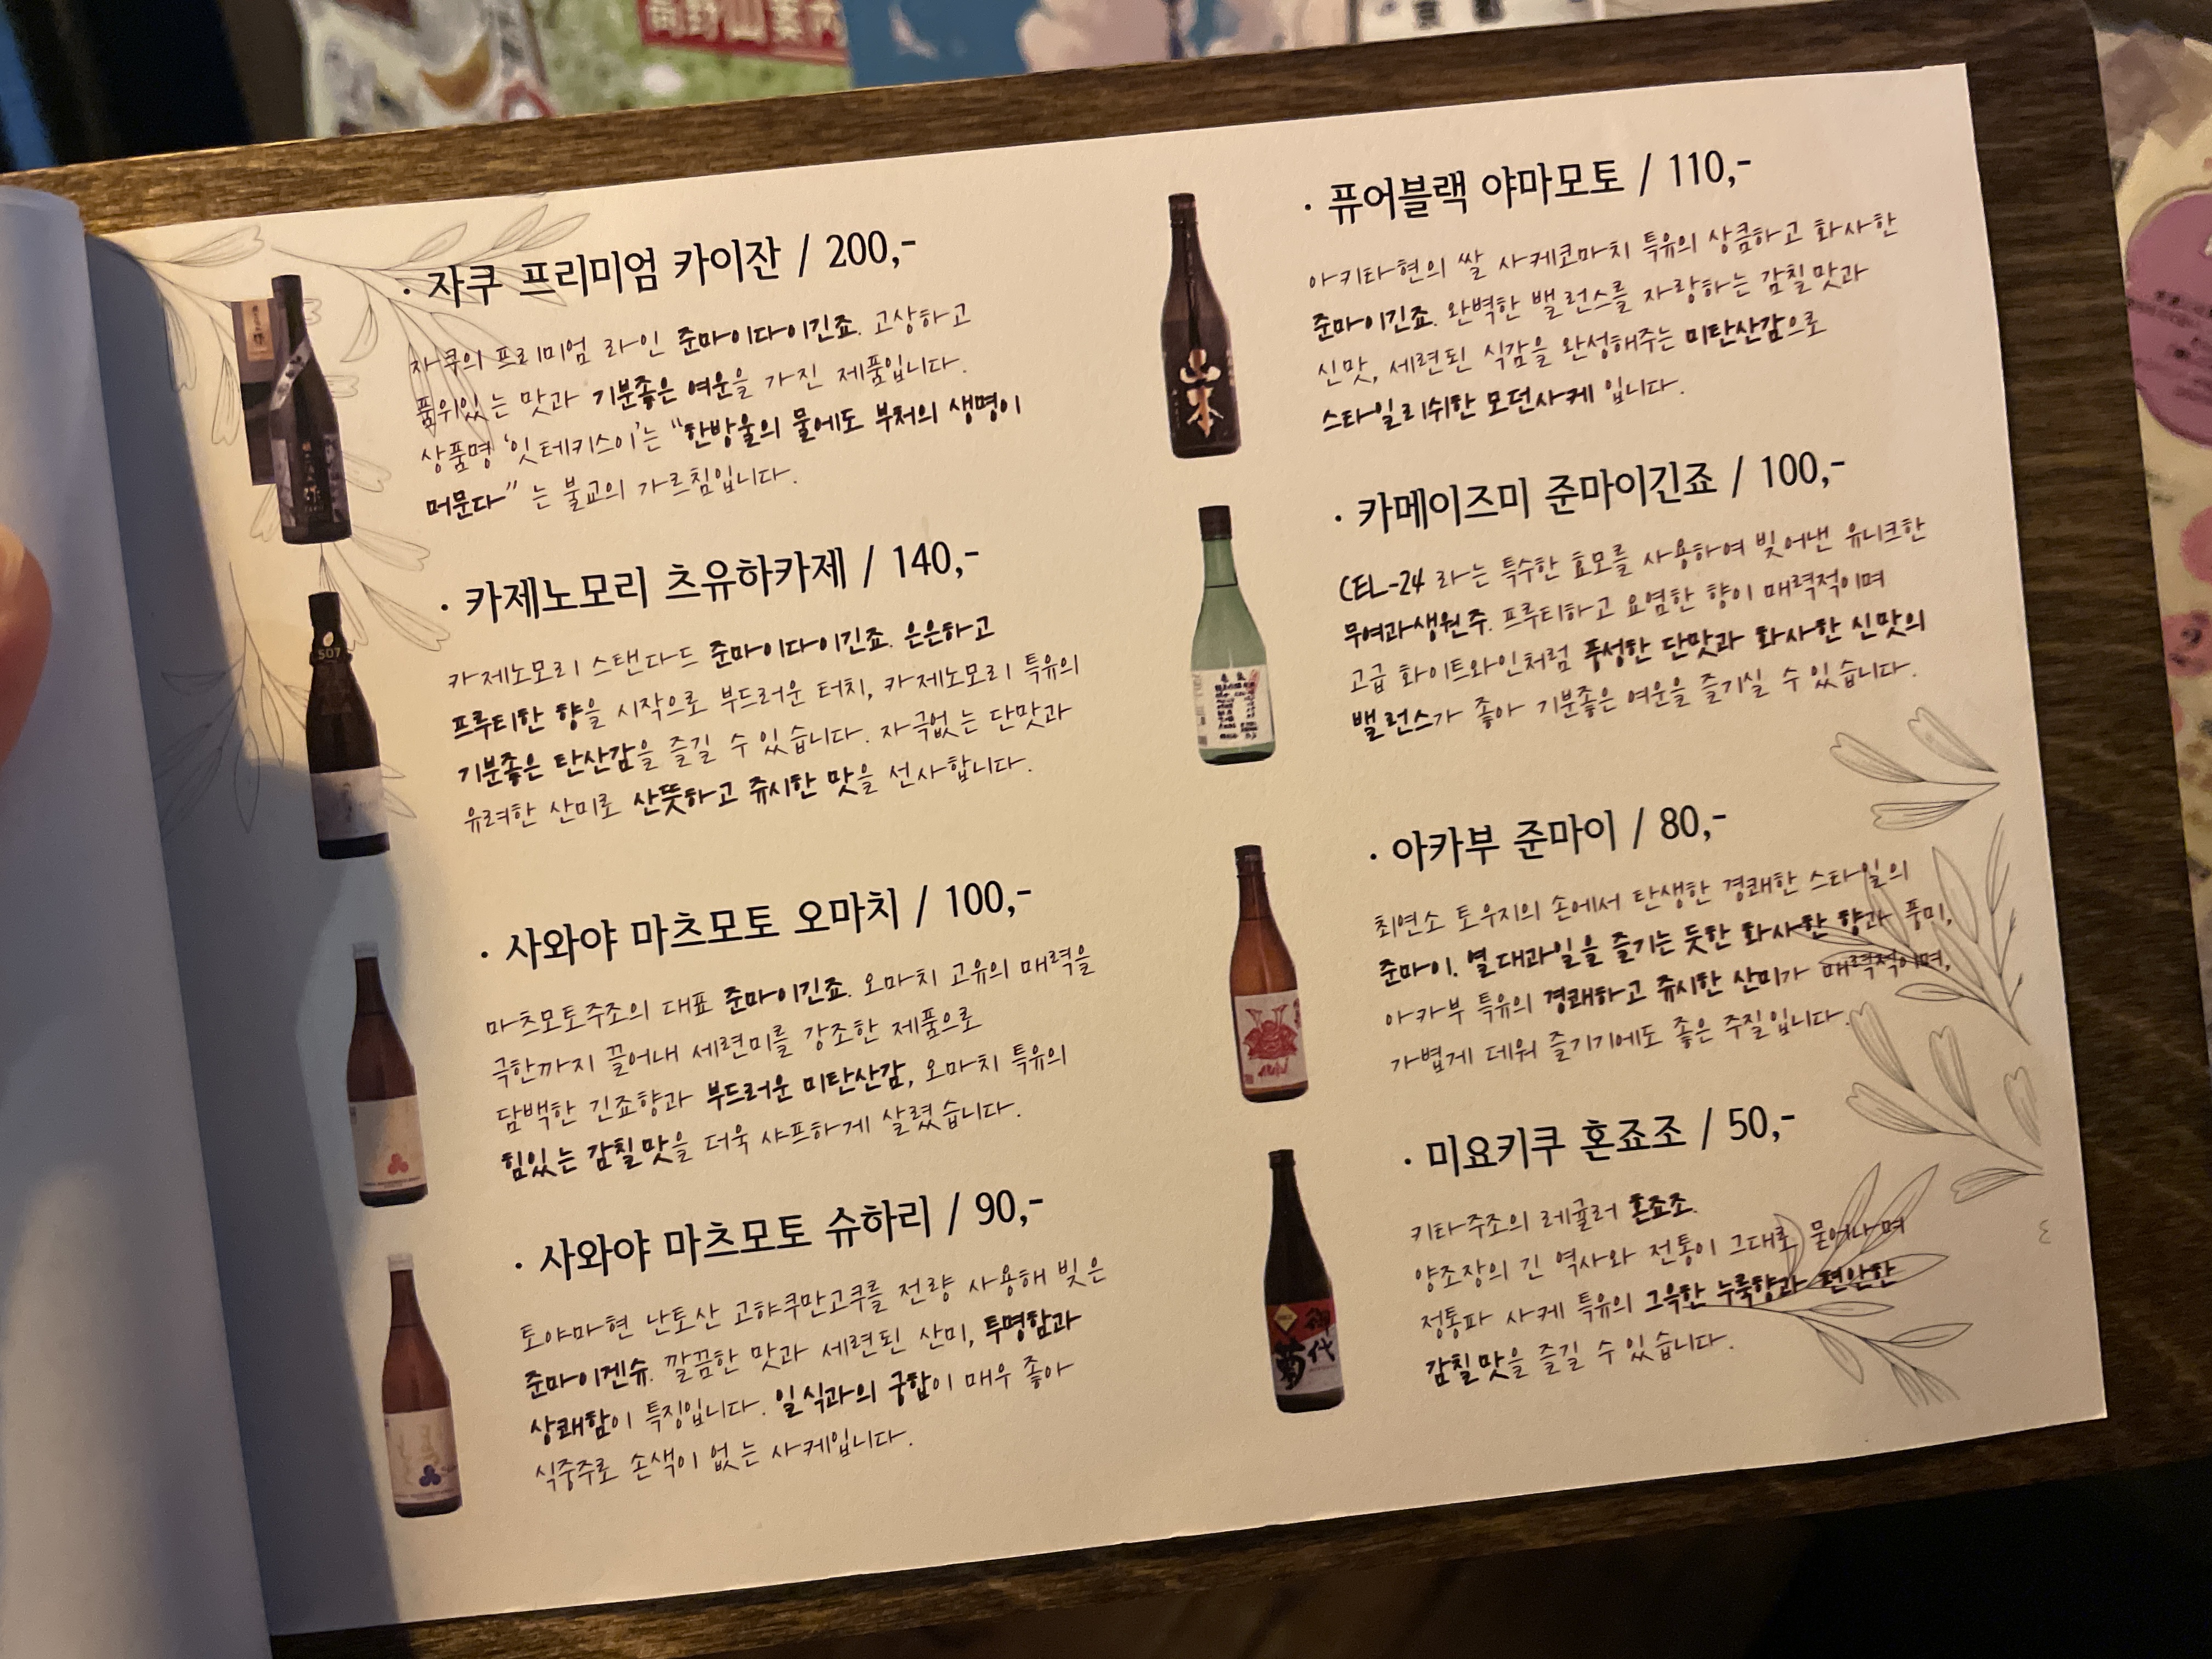 高野山案内
· 자쿠 프리미엄 카이잔 / 200,-
자쿠의 프리미엄 라인 준마이다이긴죠. 고상하고
품위있는 맛과 기분좋은 여운을 가진 제품입니다.
상품명 '잇테키스이'는 "한방울의 물에도 부처의 생명이
머문다" 는 불교의 가르침입니다.
· 카제노모리 츠유하카제 / 140,-
507
카제노모리 스탠다드 준마이다이긴죠. 은은하고
프루티한 향을 시작으로 부드러운 터치, 카제노모리 특유의
기분좋은 탄산감을 즐길 수 있습니다. 자극없는 단맛과
유려한 산미로 산뜻하고 쥬시한 맛을 선사합니다.
· 사와야 마츠모토 오마치 / 100,-
마츠모토주조의 대표 준마이긴죠. 오마치 고유의 매력을
극한까지 끌어내 세련미를 강조한 제품으로
담백한 긴죠향과 부드러운 미탄산감, 오마치 특유의
힘있는 감칠맛을 더욱 샤프하게 살렸습니다.
· 사와야 마츠모토 슈하리 / 90,-
토야마현 난토산 고햐쿠만고쿠를 전량 사용해 빚은
준마이겐슈. 깔끔한 맛과 세련된 산미, 투명함과
상쾌함이 특징입니다. 일식과의 궁합이 매우 좋아
식중주로 손색이 없는 사케입니다.
· 퓨어블랙 야마모토 / 110,-
山本
아키타현의 쌀 사케코마치 특유의 상큼하고 화사한
준마이긴죠. 완벽한 밸런스를 자랑하는 감칠맛과
신맛, 세련된 식감을 완성해주는 미탄산감으로
스타일리쉬한 모던사케 입니다.
· 카메이즈미 준마이긴죠 / 100,-
CEL-24 라는 특수한 효모를 사용하여 빚어낸 유니크한
무여과생원주. 프루티하고 요염한 향이 매력적이며
고급 화이트와인처럼 풍성한 단맛과 화사한 신맛의
밸런스가 좋아 기분좋은 여운을 즐기실 수 있습니다.
· 아카부 준마이 / 80,-
최연소 토우지의 손에서 탄생한 경쾌한 스타일의
준마이. 열대과일을 즐기는 듯한 화사한 향과 풍미,
아카부 특유의 경쾌하고 쥬시한 산미가 매력적이며,
가볍게 데워 즐기기에도 좋은 주질입니다.
· 미요키쿠 혼죠조 / 50,-
御代
菊
키타주조의 레귤러 혼죠조.
양조장의 긴 역사와 전통이 그대로 묻어나며
정통파 사케 특유의 그윽한 누룩향과 편안한
감칠맛을 즐길 수 있습니다.